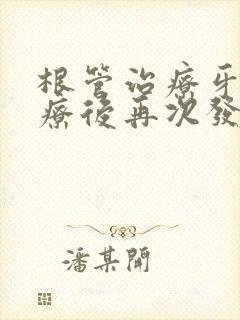 根管治療牙
療後再次發
潘某開